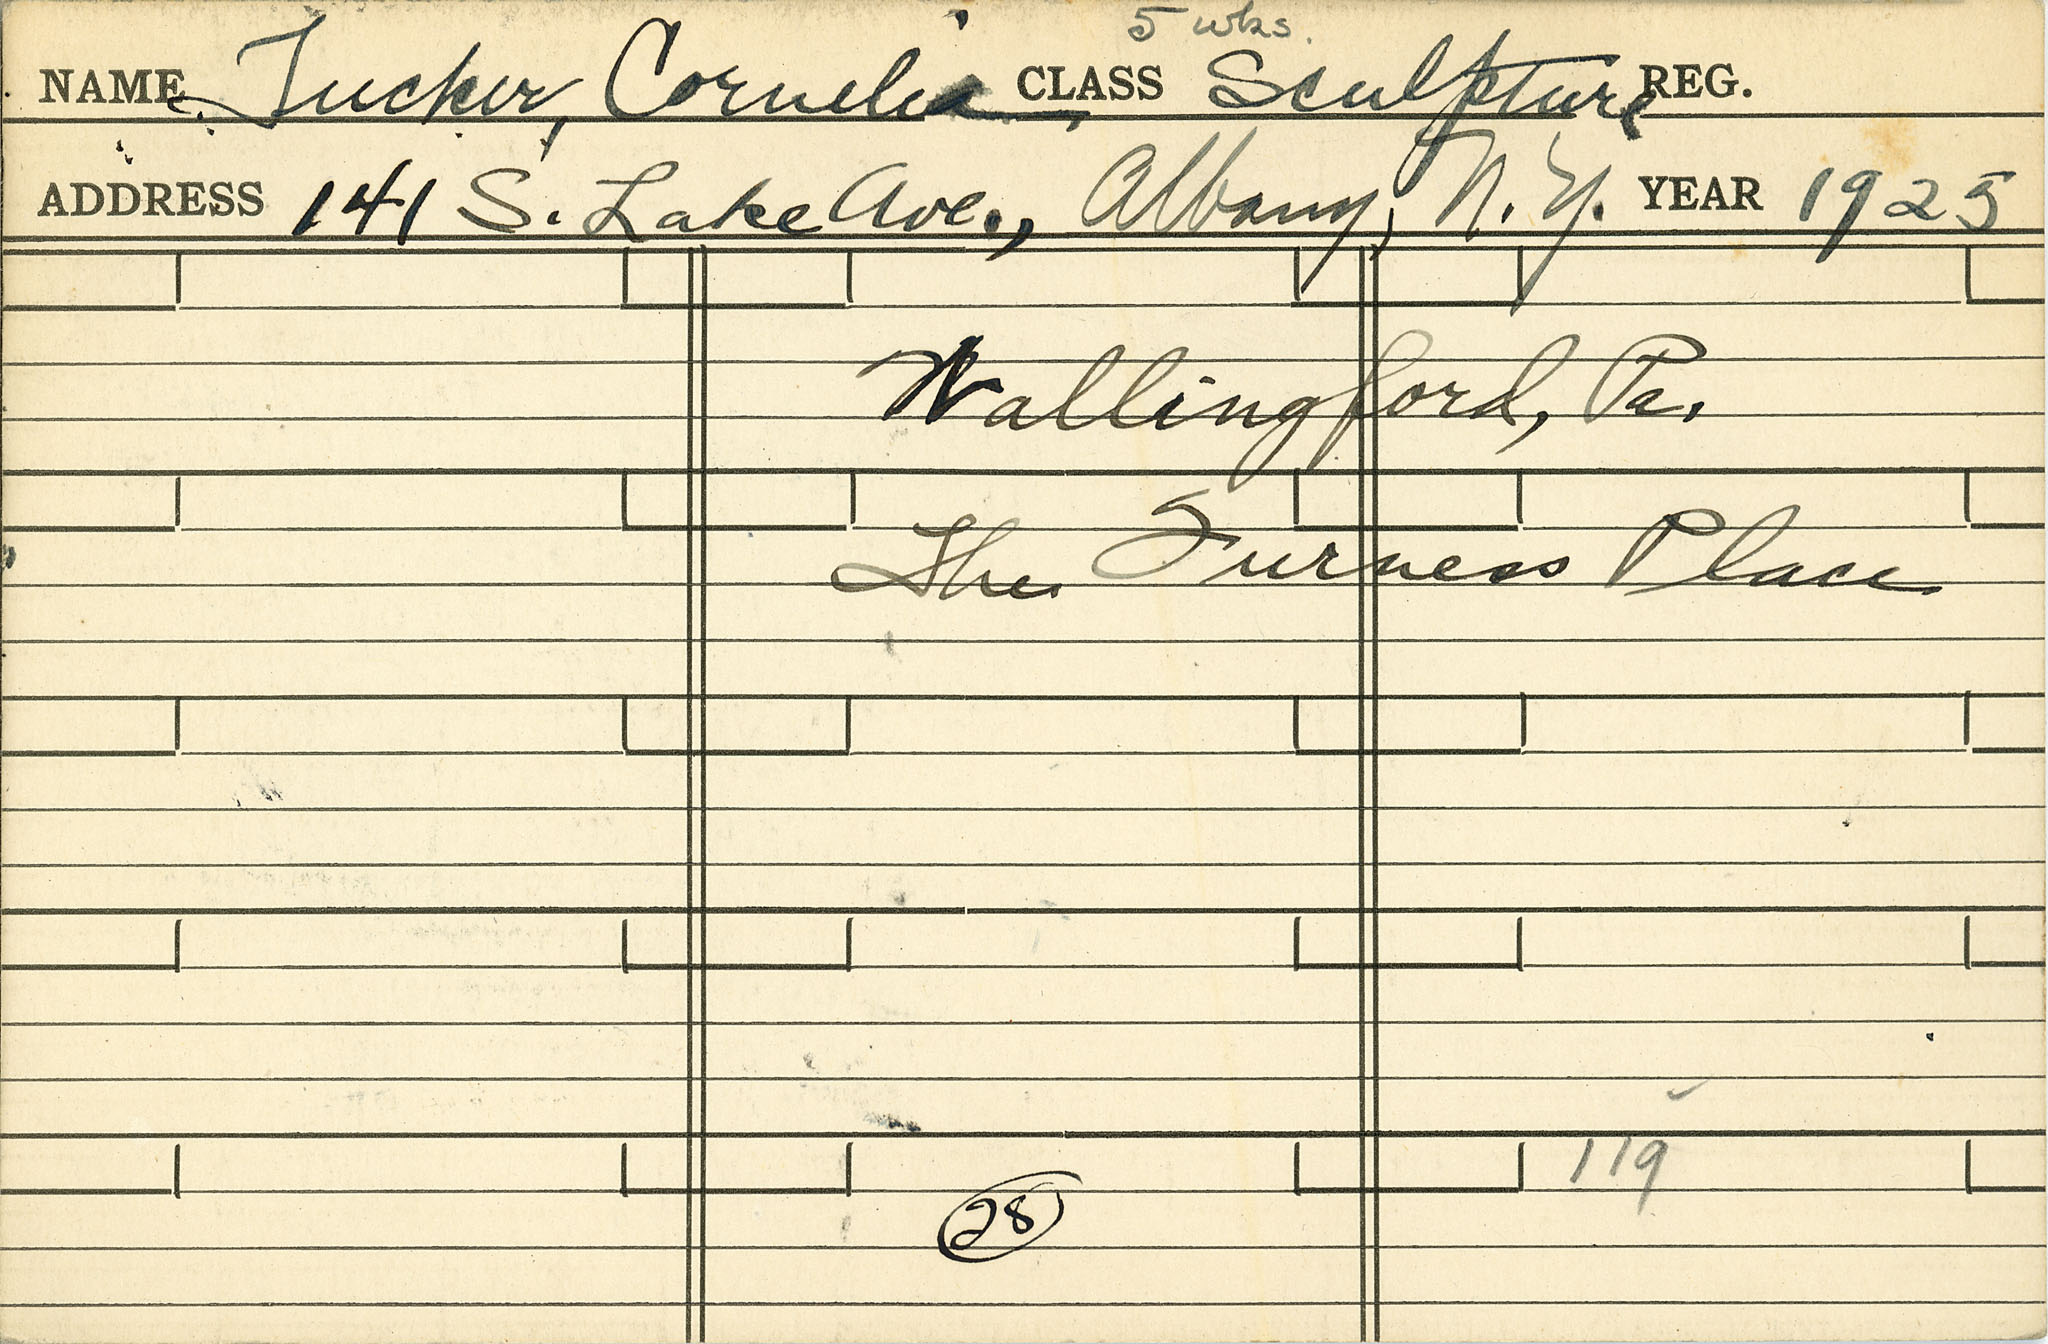 5 wks.
NAME Tucker, Cornelia CLASS Sculpture REG.
ADDRESS 141 S. Lake Ave., Albany, N.Y. YEAR 1925
Wallingford, Pa.
The Furness Place
119
28